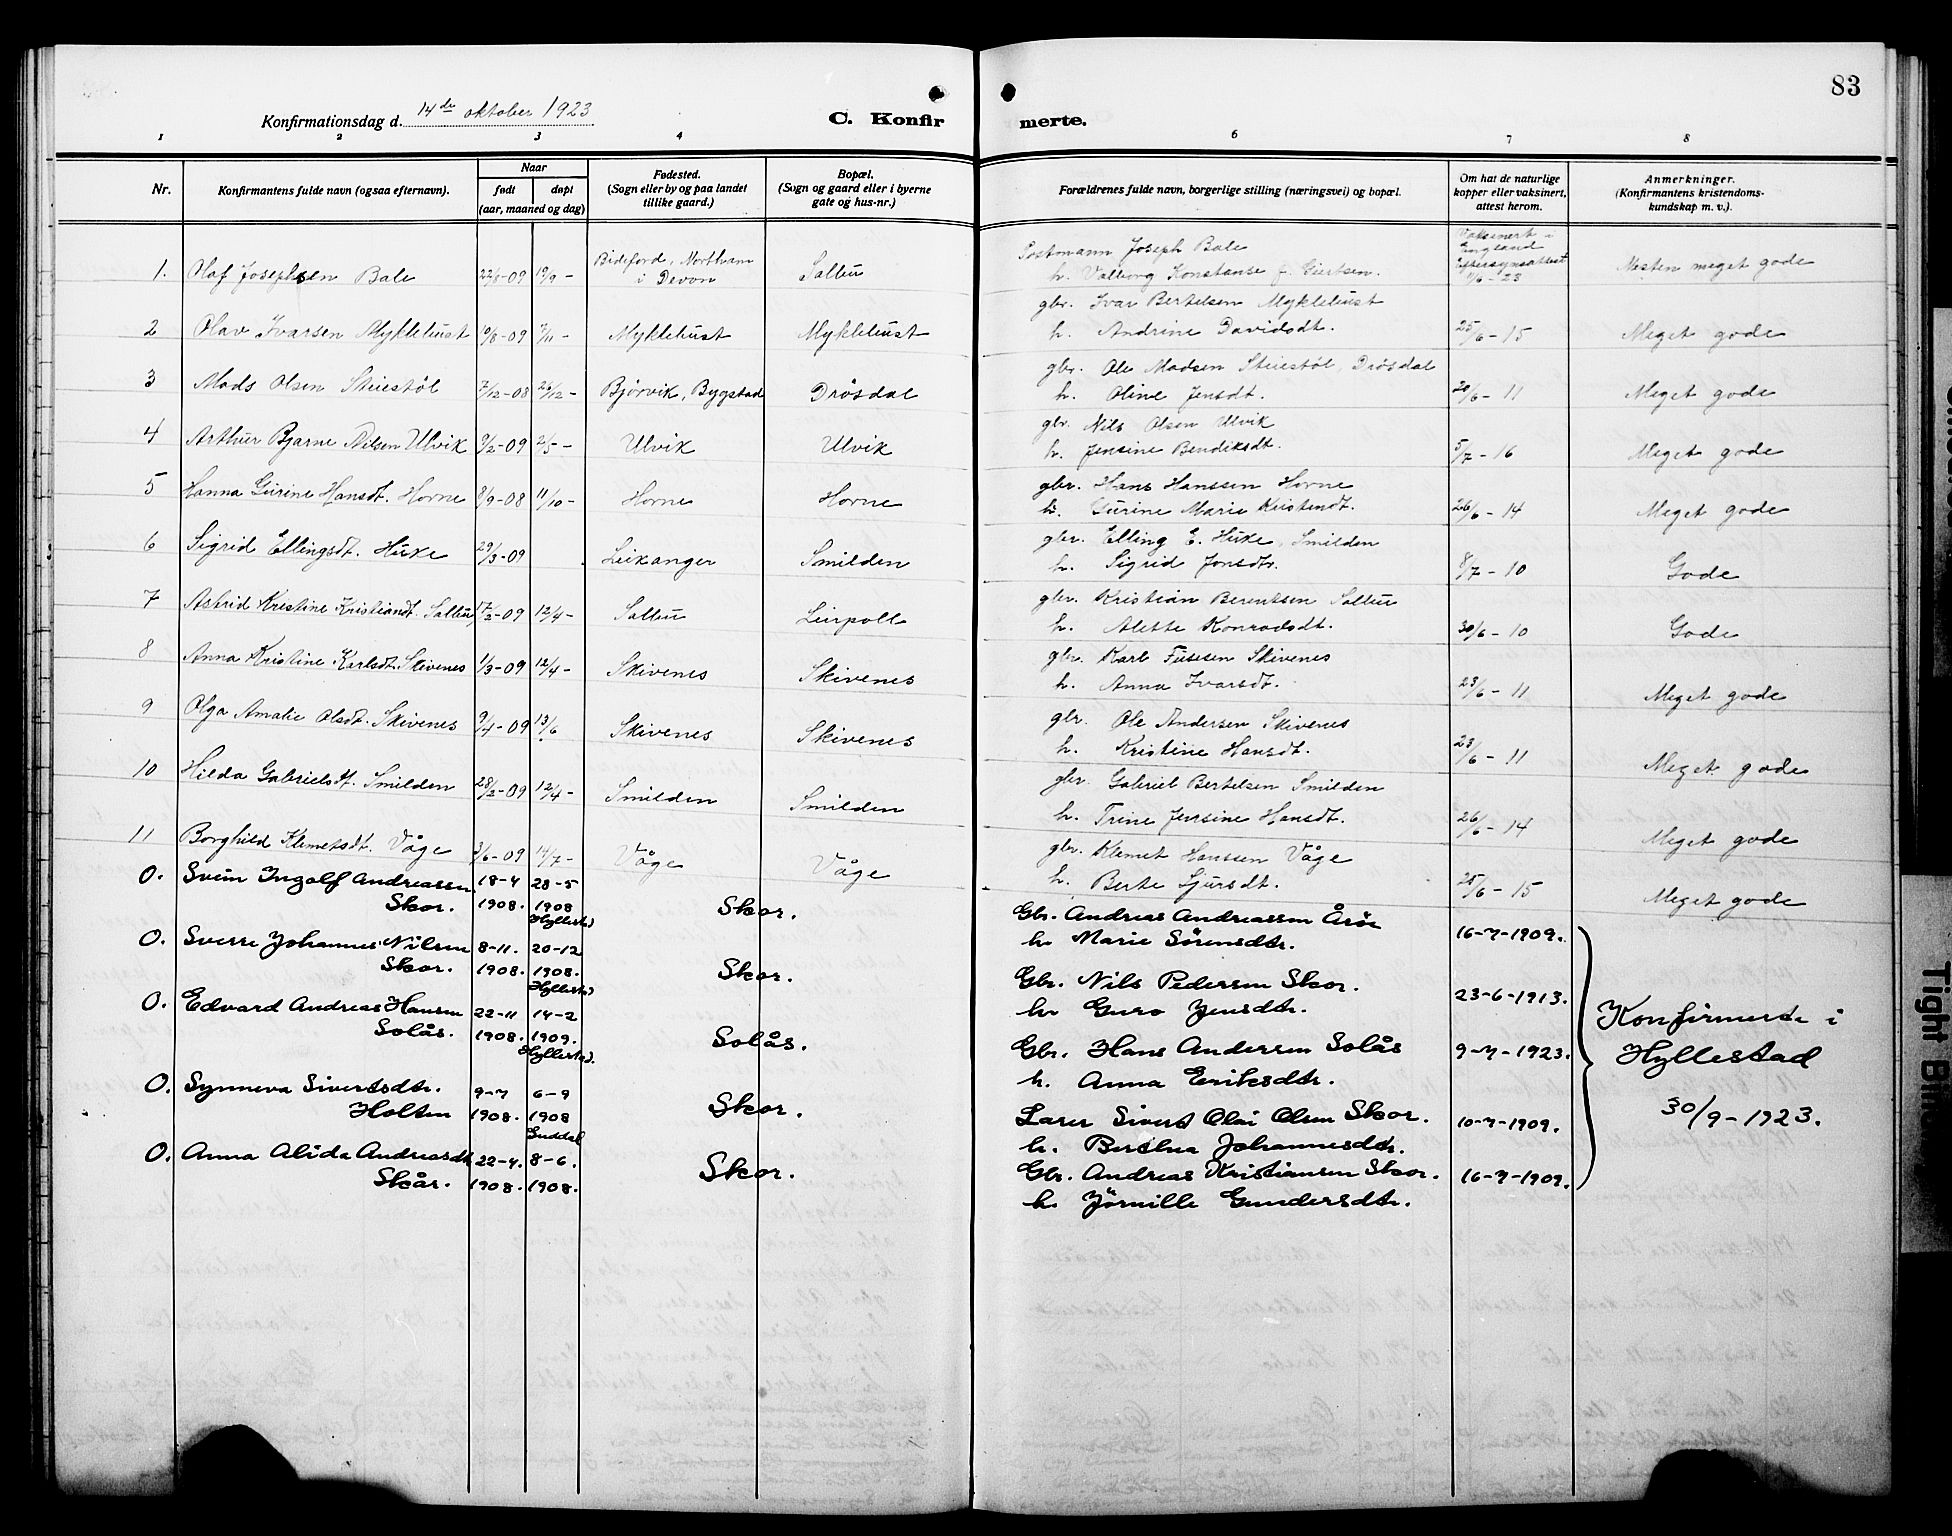 83
Konfirmationsdag d. 14de oktober 1923
C. Konfir merte.
1 2 3 4 6 7 8
Nr.
Konfirmantens fulde navn (ogsaa efternavn).
Naar
født døpt
(aar, maaned og dag)
Fødested.
(Sogn eller by og paa landet
tillike gaard.)
Bopæl.
(Sogn og gaard eller i byerne
gate og hus-nr.)
Forældrenes fulde navn, borgerlige stilling (næringsvei) og bopæl.
Om hat de naturlige
kopper eller vaksinert,
attest herom.
Anmerkninger.
(Konfirmantens kristendoms-
kundskap m. v.).
1. Olaf Josephsen Bale 22/8-09 19/9- Bideford, Northam i Devon Salbu
Postmann Joseph Bale
h. Valborg Konstanse f. Giertsen.
Vaksinert i
England
Eftersynsattest
1/6-23
Nesten meget gode
2 Olav Ivarsen Myklebust 19/8-09 7/11- Myklebust Myklebust
gbr. Ivar Bertelsen Myklebust
h. Andrine Davidsdt. 25/6-15 Meget gode
3 Mads Olsen Stiestøl 7/12-08 26/12- Bjørvik, Bygstad Drøsdal
gbr. Ole Madsen Stiestøl, Drøsdal
h. Oline Jensdt. 20/6-11 Meget gode
4 Arthur Bjarne Nilsen Ulvik 9/2-09 2/5- Ulvik Ulvik
gbr. Nils Olsen Ulvik
h. Jensine Bendiksdt. 5/7-16 Meget gode
5 Hanna Gurine Hansdt. Horne 8/9-08 11/10- Horne Horne
gbr. Hans Hanssen Horne
h. Gurine Marie Kristendt. 26/6-14 Meget gode
6 Sigrid Ellingsdt. Huke 29/3-09 Leikanger Smilden
gbr. Elling E. Huke, Smilden
h. Sigrid Jonsdtr. 8/7-10 Gode
7 Astrid Kristine Kristiandt. Salbu 17/2-09 12/4- Salbu Leirpoll
gbr. Kristian Berentsen Salbu
h. Alette Konradsdt. 30/6-10 Gode
8 Anna Kristine Karlsdt. Skivenes 1/3-09 12/4- Skivenes Skivenes
gbr. Karl Skivenes
h. Anna Ivarsdt. 23/6-11 Meget gode
9 Olga Amalie Olsdt. Skivenes 9/4-09 13/6 Skivenes Skivenes
gbr. Ole Andersen Skivenes
h. Kristine Hansdt. 23/6-11 Meget gode
10 Hilda Gabrielsdt. Smilden 28/2-09 12/4- Smilden Smilden
gbr. Gabriel Bertelsen Smilden
h. Trine Jensine Hansdt. 26/6-14 Meget gode
11 Borghild Klemetsdt. Våge 3/6-09 14/7- Våge Våge
gbr. Klemet Hanssen Våge
h. Berte Sjursdt. 25/6-15 Meget gode
0. Svein Ingolf Andreassen 18-4 28-5
Skor. 1908. 1908 Hyllestad Skor.
Gbr. Andreas Andreassen Årøe
h. Marie Sørensdtr. 16-7-1909.
0. Sverre Johannes Nilsen 8-11. 20-12
Skor. 1908. 1908. Hyllestad Skor.
Gbr. Nils Pedersen Skor.
h. Guro Jensdtr. 23-6-1913.
0. Edvard Andreas Hansen 22-11 14-2
Solås. 1908. 1909. Hyllestad. Solås.
Gbr. Hans Andersen Solås
h. Anna Eriksdtr. 9-7-1923.
0. Synneva Sivertsdtr. 9-7 6-9
Holten 1908. 1908 Guddal Skor.
Lærer Sivert Olai Olsen Skor.
h. Berthea Johannesdtr. 10-7-1909.
0. Anna Alida Andreasdtr 22-4. 8-6.
Skår. 1908. 1908. Skor.
Gbr. Andreas Kristiansen Skor.
h. Jørnille Gundersdtr. 16-7-1909.
Konfirmerte i
Hyllestad
30/9-1923.
Tight Bin